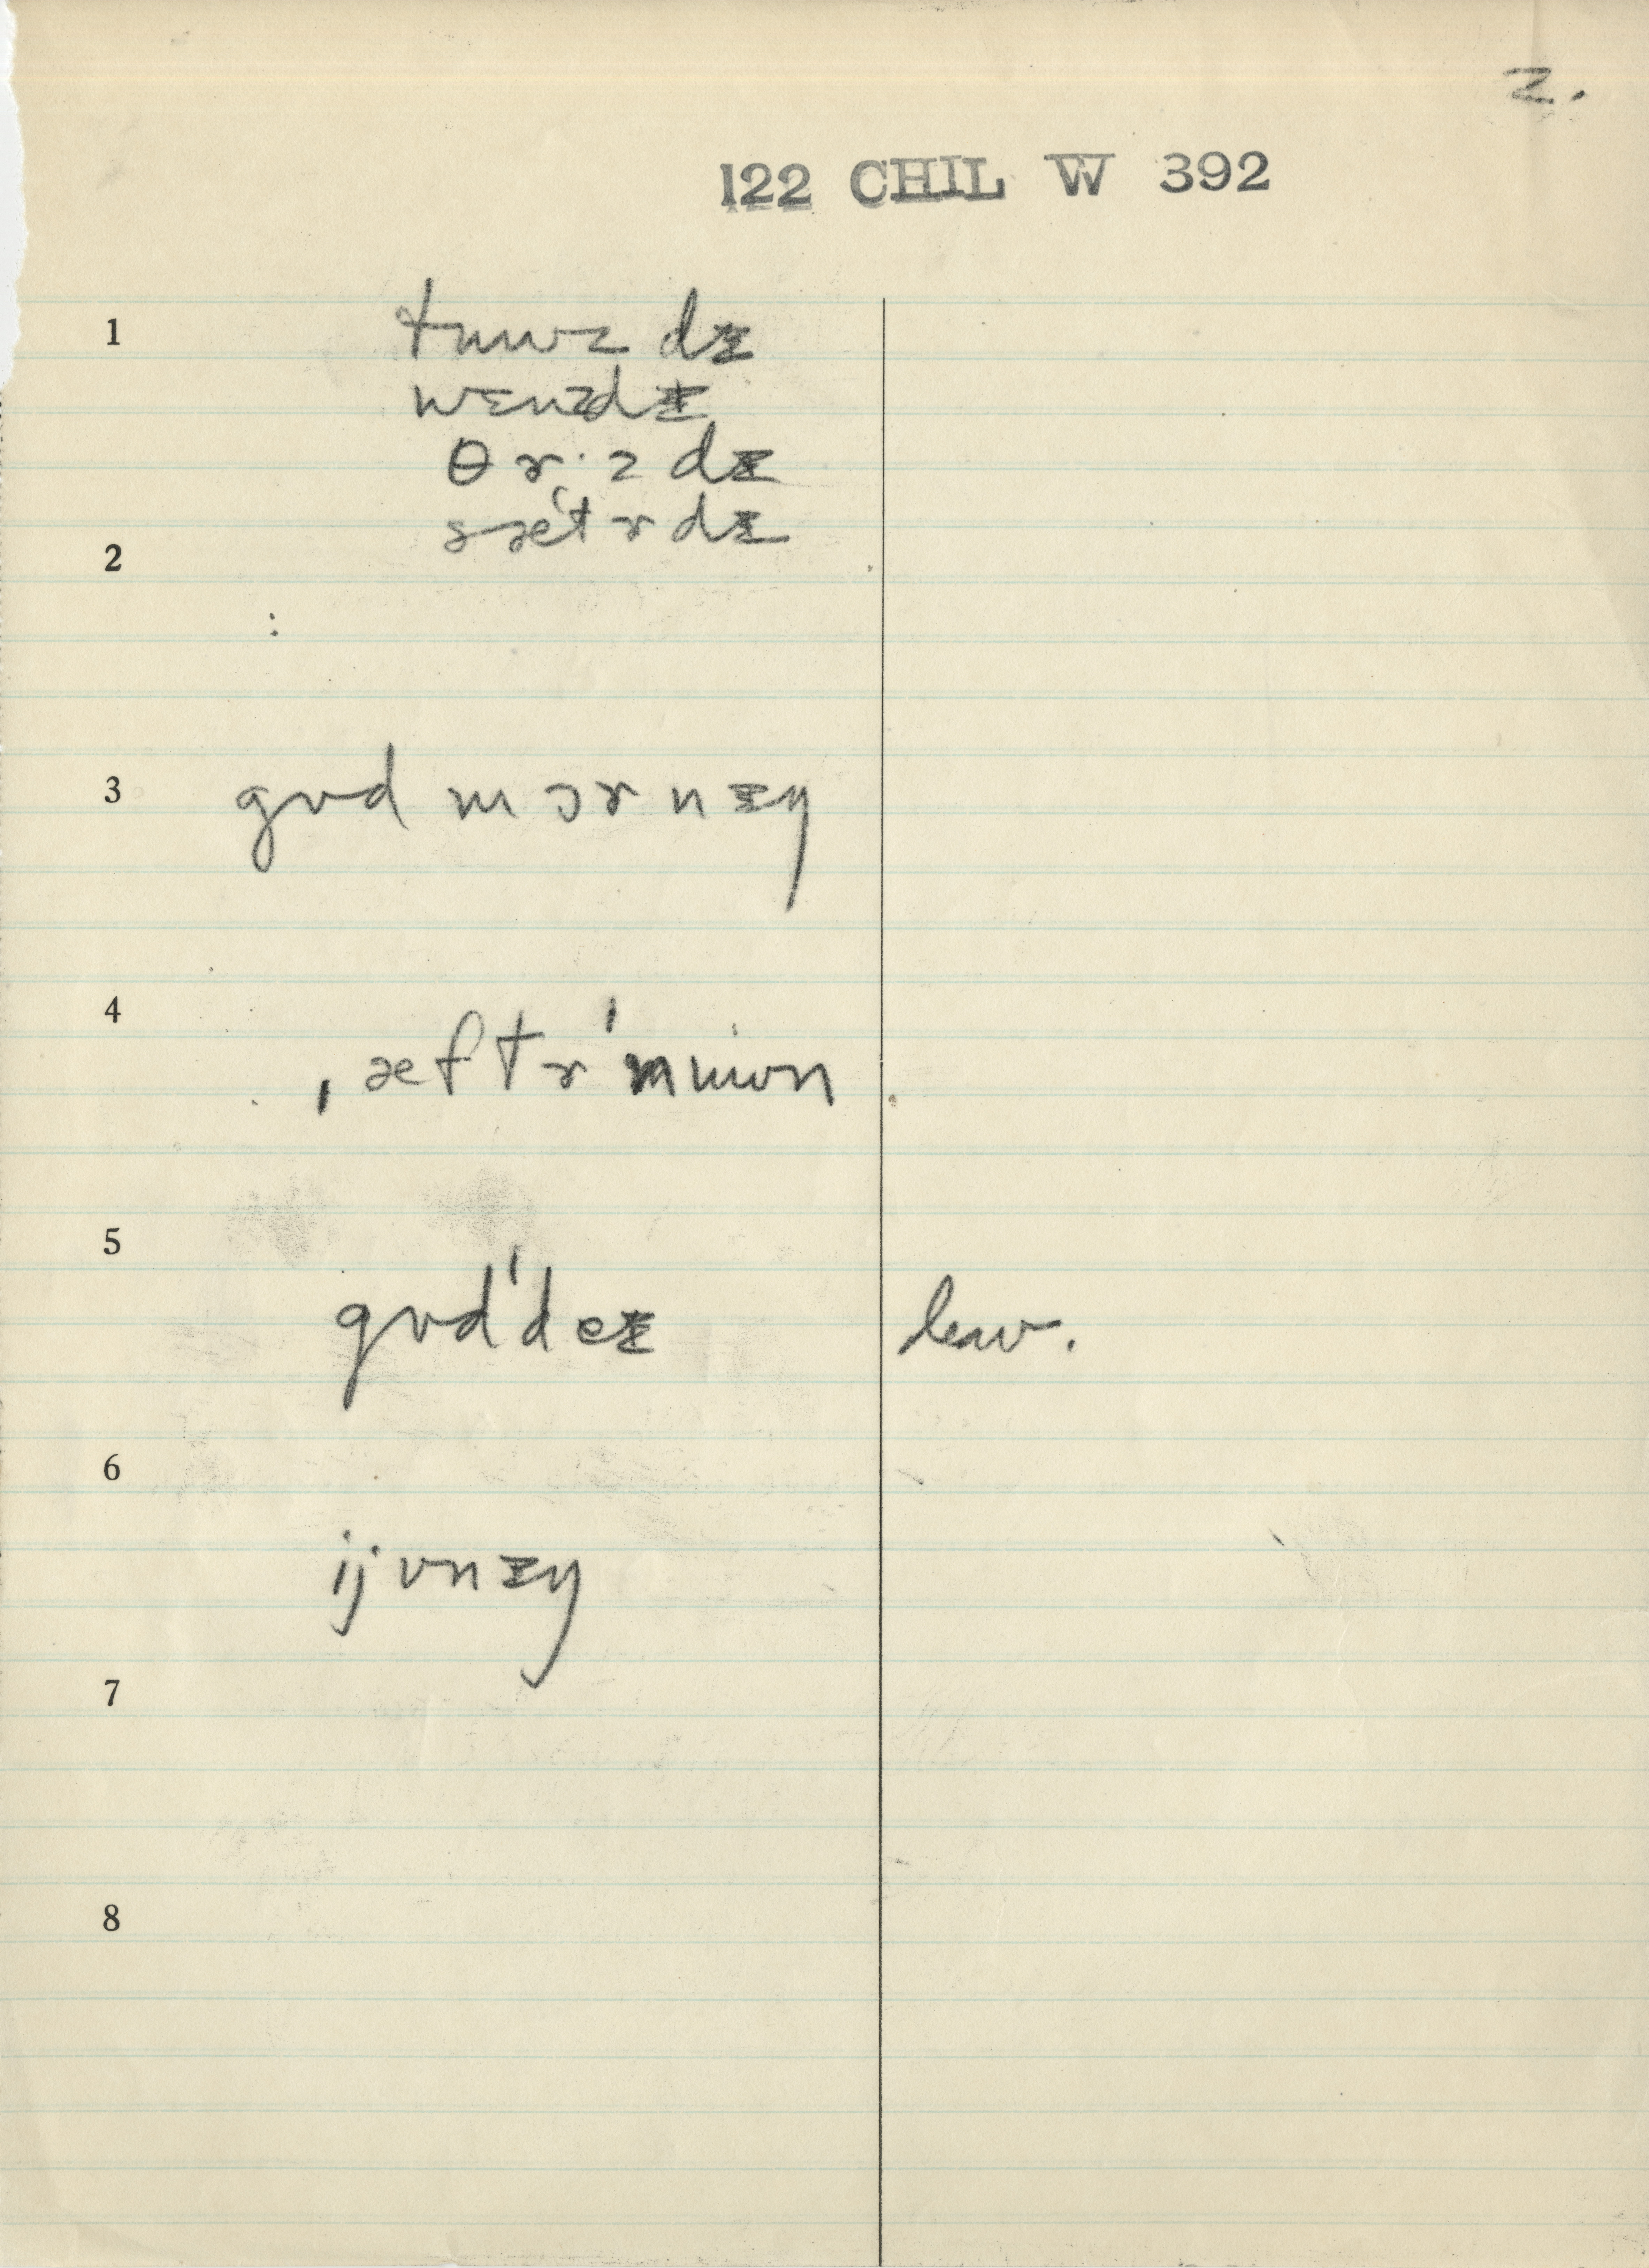 2.
122 CHIL W 392
1 tɯuz dɪ
wɛnzdɪ
θɚ·z dɪ
sǽ̨tɚdɪ
2
:
3 gʊd mɔɚnɪŋ
4
ˌæftɚˈnuʷn
5
gʊdˈdeɪ leav.
6
ijvnɪŋ
7
8